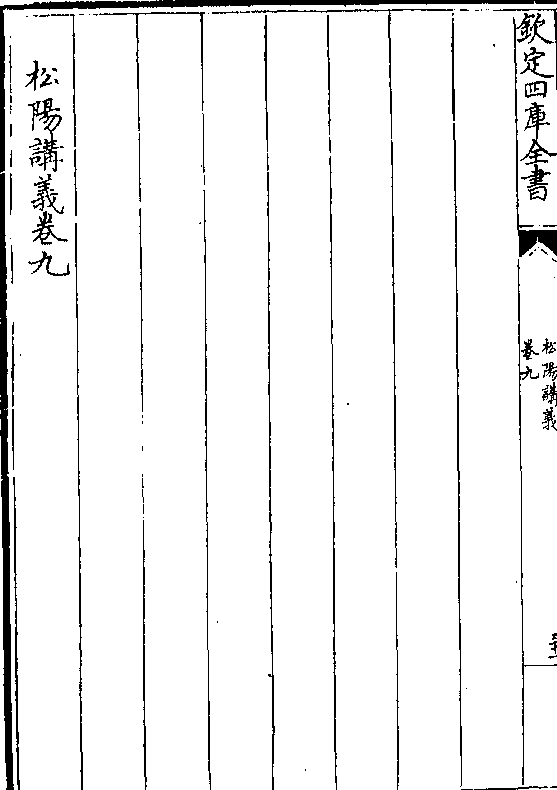 欽定四庫全書
松陽講義
卷九
松陽講義卷九